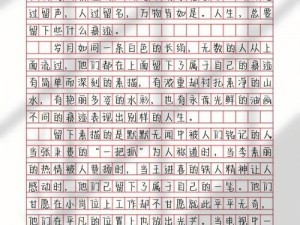 过留声，人过留名，万物皆如是。人生，总要
留下些什么痕迹。
岁月如同一条白色的长绸，无数的人从上
面流过，他们都在上面留下了属于自己的痕迹
有简单而深刻的素描，有浓重越衬托素净的山
水，有艳丽多姿的水彩，也有永葆光鲜的油画
不同的痕迹表现出别样的人生。
留下素描的是默默无闻中被人们铭记的人
当张秉贵的“一把抓”为人称道时，当李素丽
的热情被人赞扬时，当王进喜的铁人精神让人
感动时，他们已留下了属于自己的一笔。他们
甘愿在小岗位上工作却不甘愿就此平平无奇，
他们在平凡的位置上也放出光芒。当电视中一